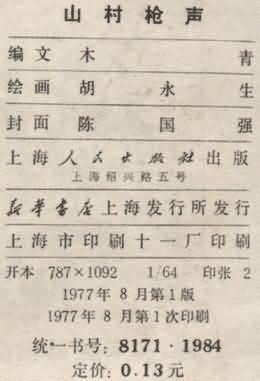 山村枪声
编文 木青
绘画 胡永生
封面 陈国强
上海人民出版社出版
上海绍兴路五号
新华书店上海发行所发行
上海市印刷十一厂印刷
开本 787×1092 1/64 印张 2
1977年8月第1版
1977年8月第1次印刷
统一书号: 8171·1984
定价: 0.13元